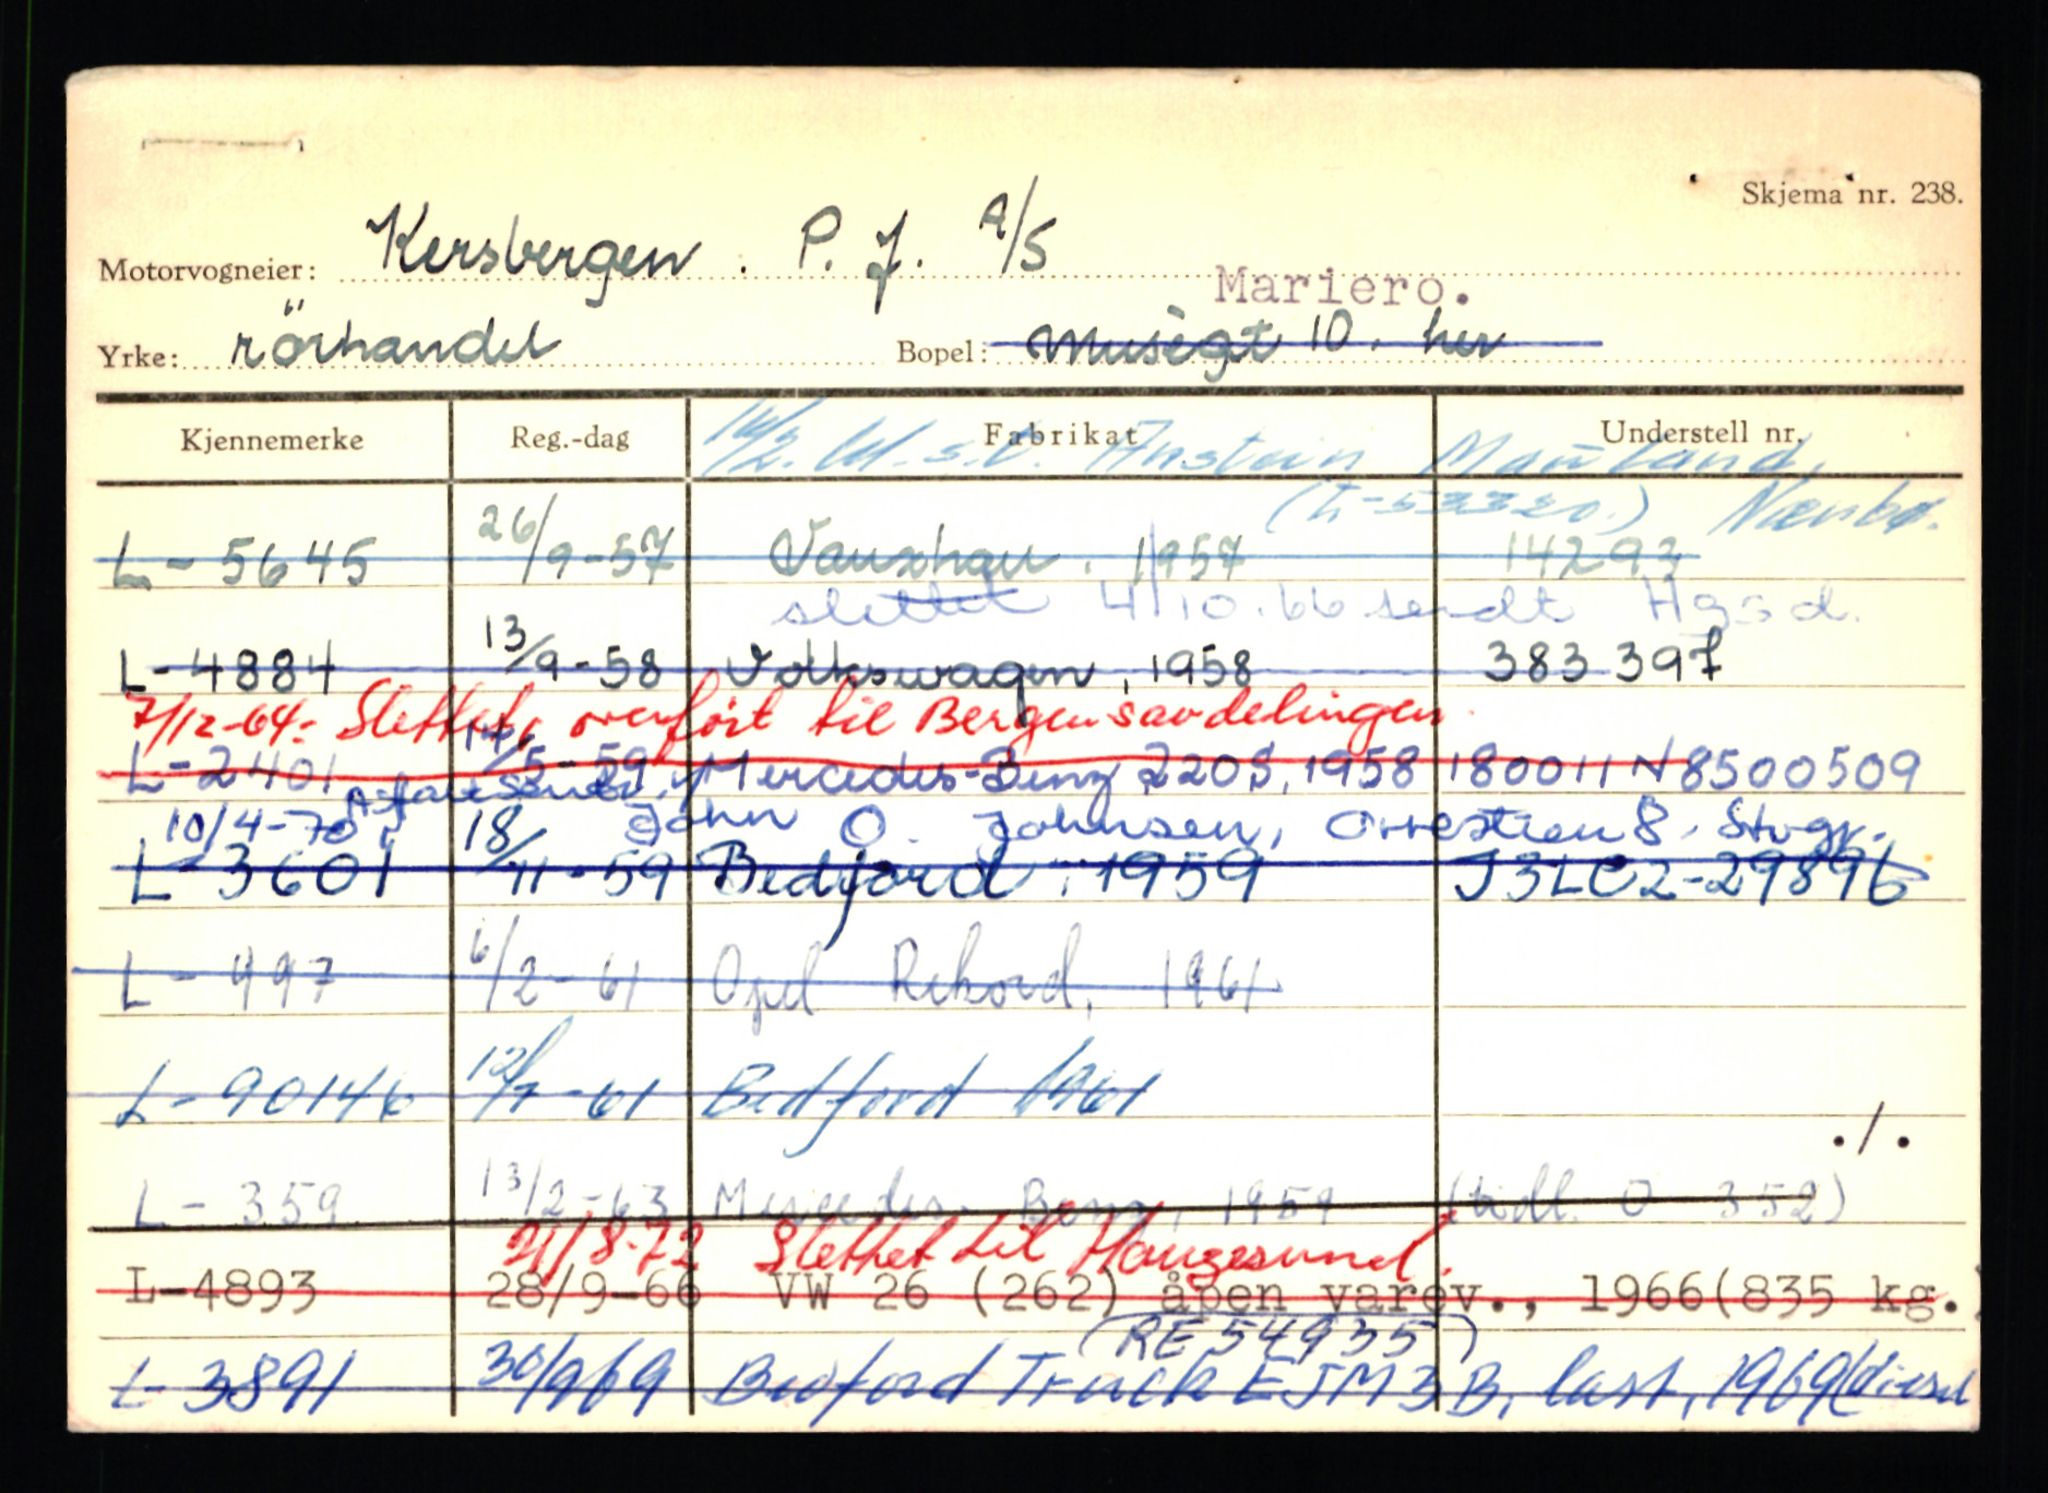 Skjema nr. 238.
Motorvogneier: Kersbergen. P. J. A/S
Mariero.
Yrke: rörhandel Bopel: Musègt 10. her
Kjennemerke Reg.-dag Fabrikat Understell nr.
14/2. Anstein Mauland,
Nærbø.
L-5645 26/9-57 Vauxhau. 1957 14293
slettet 4/10.66 sendt Hgsd.
L-4884 13/9-58 Volkswagen, 1958 383 397
7/12-64: Slettet, overført til Bergensavdelingen.
L-2401 14/5-59 Mercedes-Benz 220S, 1958 180011 N 8500509
10/4-70 John O. Johnsen, Orrestien 8. Stvgr.
L-3601 18/11-59 Bedford. 1959 J3LC2-29896
L-497 6/2-61 Opel Rekord, 1961
L-90146 12/7-61 Bedford 1961
./.
L-359 13/2-63 Mercedes Benz, 1959 (tidl. O 352)
21/8-72 Slettet til Haugesund.
L-4893 28/9-66 VW 26 (262) åpen varev., 1966(835 kg.)
(RE 54935)
L-3891 30/9 69 Bedford Truck EJM3B, last, 1969(diesel